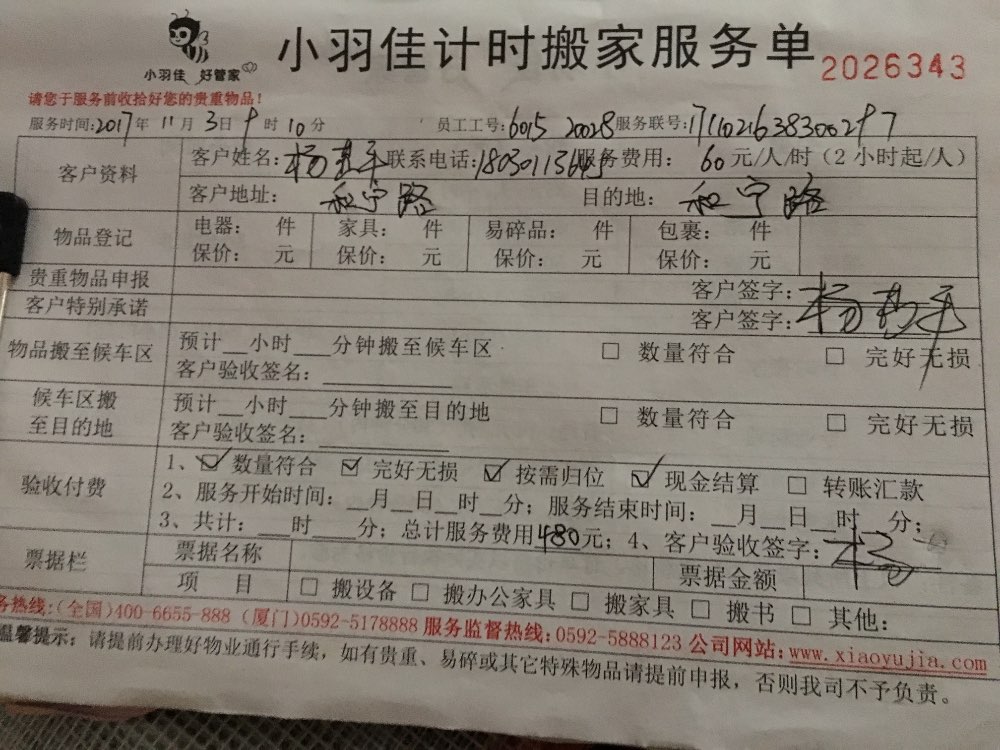 小羽佳 好管家
小羽佳计时搬家服务单 2026343
请您于服务前收拾好您的贵重物品！
服务时间：2017年 11月 3日 9时 10分 员工工号：6015 20028 服务联号：
客户资料 客户姓名：杨 联系电话： 服务费用： 60元/人/时（2小时起/人）
客户地址： 和宁路 目的地： 和宁路
物品登记 电器： 件 家具： 件 易碎品： 件 包裹： 件
保价： 元 保价： 元 保价： 元 保价： 元
贵重物品申报 客户签字：杨
客户特别承诺 客户签字：
物品搬至候车区 预计__小时___分钟搬至候车区 □ 数量符合 □ 完好无损
客户验收签名：
候车区搬至目的地 预计__小时___分钟搬至目的地 □ 数量符合 □ 完好无损
客户验收签名：
验收付费 1、☑ 数量符合 ☑ 完好无损 ☑ 按需归位 ☑ 现金结算 □ 转账汇款
2、服务开始时间：__月__日__时__分；服务结束时间：__月__日__时__分；
3、共计：___时___分；总计服务费用480元；4、客户验收签字：杨
票据栏 票据名称 票据金额
项 目 □ 搬设备 □ 搬办公家具 □ 搬家具 □ 搬书 □ 其他：
务热线：（全国）400-6655-888 （厦门）0592-5178888 服务监督热线：0592-5888123 公司网站：www.xiaoyujia.com
温馨提示：请提前办理好物业通行手续，如有贵重、易碎或其它特殊物品请提前申报，否则我司不予负责。